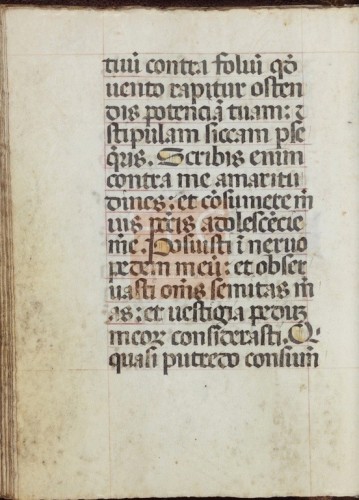 tuū contra foliū qđ
uento rapitur osten
dis potenciā tuam: ⁊
stipulam siccam pse
q̄ris. Scribis enim
contra me amaritu
dines: et cōsumere m̄
uis pctīs adolescēcie
mē. Posuisti ī neruo
pedem meū: et obser
uasti om̄s semitas m̄
as: et uestigia peduꝫ
meoꝝ considerasti. Q
quasi putredo consum̄